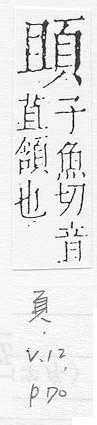 子魚切音
苴也
頁.
V.12,
p70